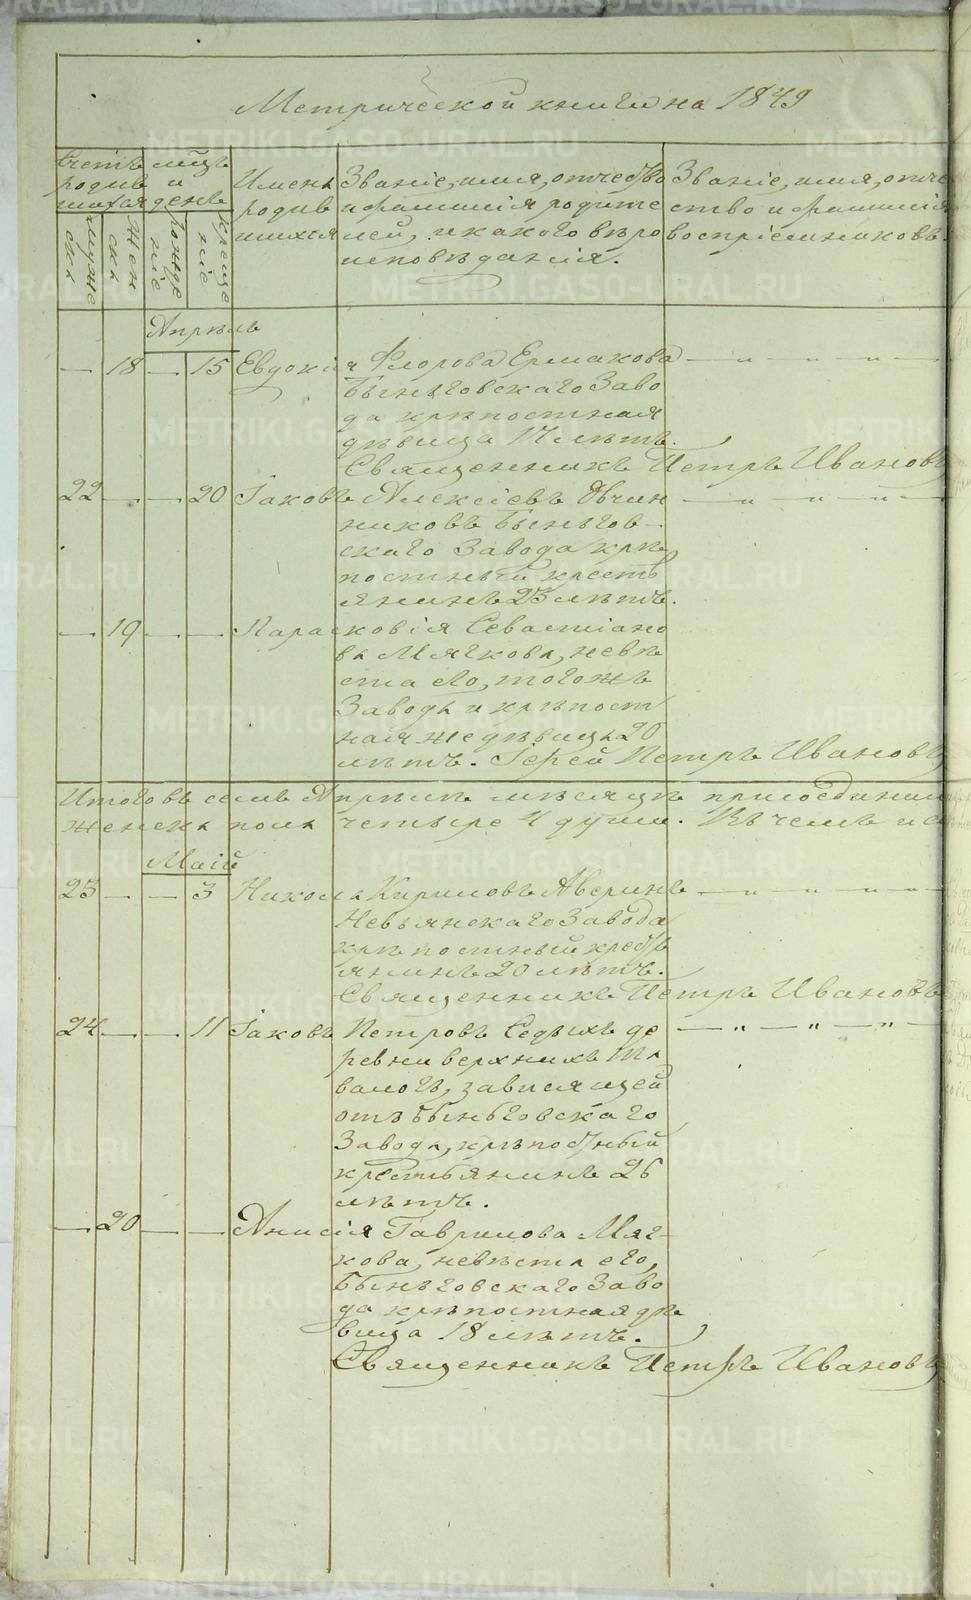 Метрической книги на 1849
Счетъ родив шихся
мѣсяцъ и день
Имена родив шихся
Званіе, имя, отчество и фамилія родите лей, и какого вѣро исповѣданія.
Званіе, имя, отче ство и фамилія воспріемниковъ.
муже ска
жен ска
рожде ніе
креще ніе
Апрѣль
— 18 — 15 Евдокія Флорова Ермакова — " — " — " —
Быньговскаго Заво
да крѣпостная
дѣвица 17 лѣтъ.
Священникъ Петръ Ивановъ
22 — — 20 Іаковъ Алексіевъ Овчин — " — " — " —
никовъ Быньгов-
скаго Завода крѣ
постный кресть
янинъ 23 лѣтъ.
— 19 — — Парасковія Севастіано
ва Мягкова, невѣ
ста его, тогожъ
Завода и крѣпост
ная же дѣвица 20
лѣтъ. Іерей Петръ Ивановъ
Итого въ семъ Апрѣлѣ мѣсяцѣ присоединен
женска пола четыре 4 души. Въ чемъ и с
Маій
23 — — 3 Никола Кириловъ Аверинъ — " — " — " —
Невьянскаго Завода
крѣпостный кресть
янинъ 20 лѣтъ.
Священникъ Петръ Ивановъ
24 — — 11 Іаковъ Петровъ Седыхъ де — " — " — " —
ревни верхнихъ Та
валогъ, зависящей
отъ Быньговскаго
Завода, крѣпостный
крестьянинъ 26
лѣтъ.
— 20 — — Анисія Гаврилова Мяг-
кова, невѣста его,
Быньговскаго Заво
да крѣпостная дѣ
вица 18 лѣтъ.
Священникъ Петръ Ивановъ
METRIKI.GASO-URAL.RU